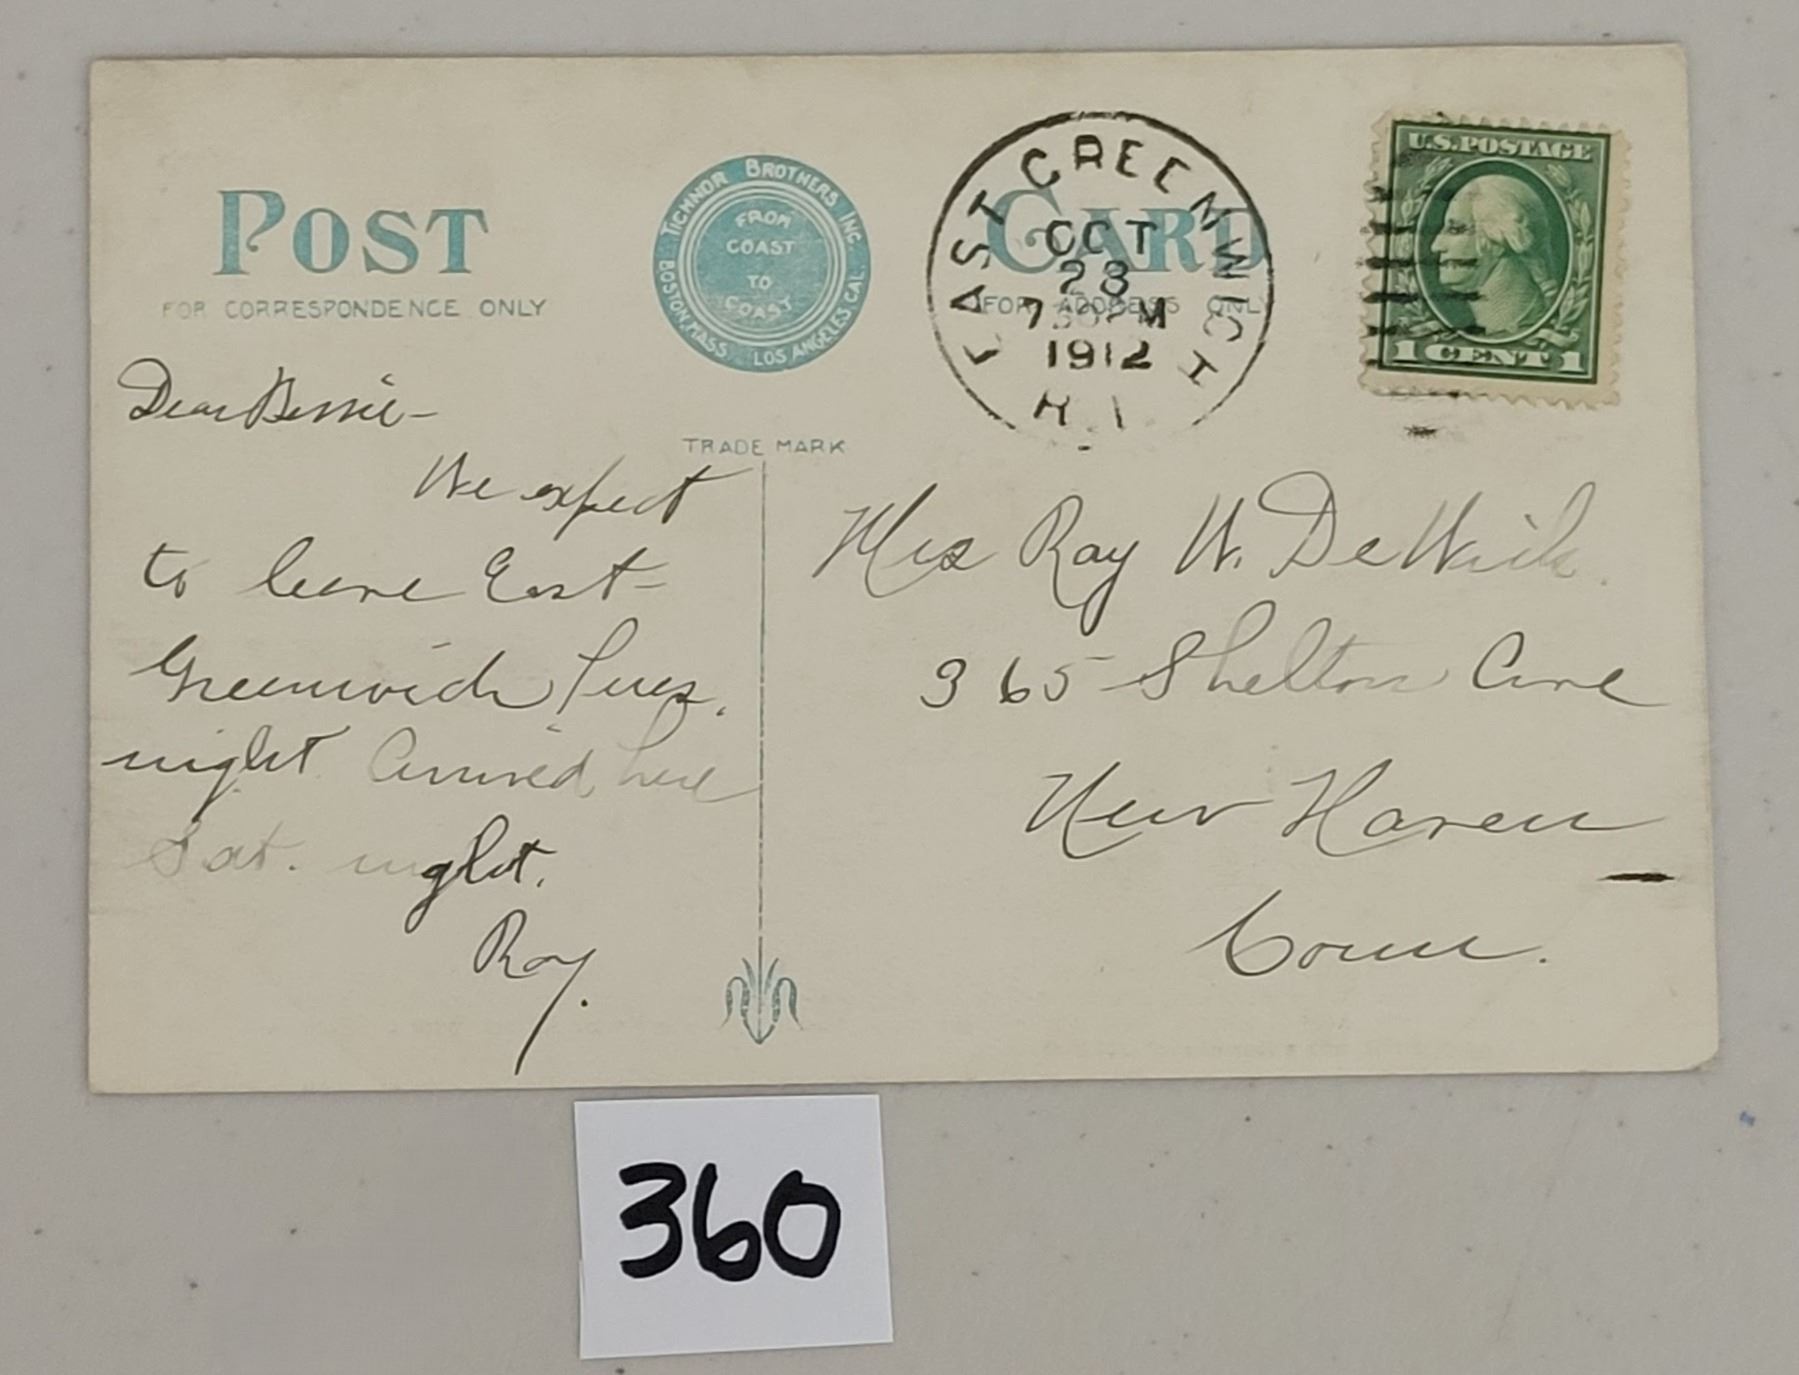 POST CARD
FOR CORRESPONDENCE ONLY
FOR ADDRESS ONLY
TICHNOR BROTHERS INC.
BOSTON, MASS. LOS ANGELES CAL.
FROM
COAST
TO
COAST
TRADE MARK
EAST GREENWICH
OCT
28
7 30 PM
1912
R.I.
U.S. POSTAGE
1 CENT 1
Dear Bessie-
We expect
to leave East-
Greenwich Tues.
night Arrived here
Sat. night.
Ray.
Mrs Ray W. DeWick.
365 Shelton Ave
New Haven
Conn.
360